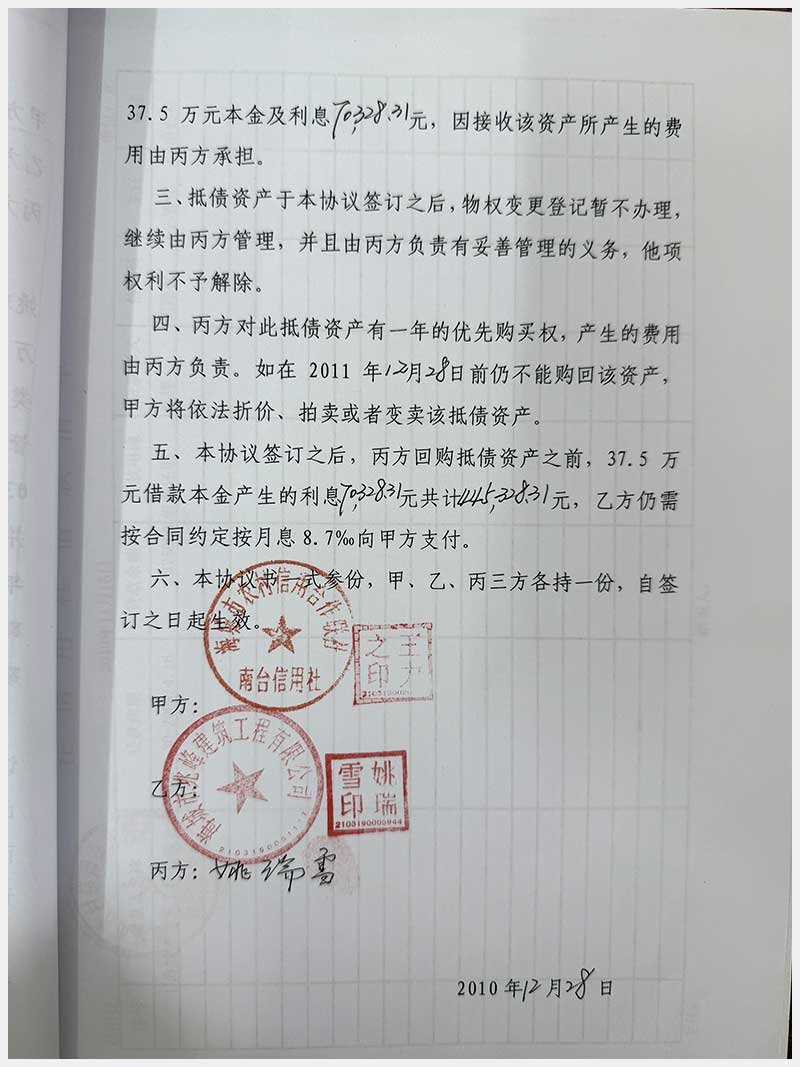 37.5 万元本金及利息70,328.31元，因接收该资产所产生的费
用由丙方承担。
三、抵债资产于本协议签订之后，物权变更登记暂不办理，
继续由丙方管理，并且由丙方负责有妥善管理的义务，他项
权利不予解除。
四、丙方对此抵债资产有一年的优先购买权，产生的费用
由丙方负责。如在 2011 年12月28日前仍不能购回该资产，
甲方将依法折价、拍卖或者变卖该抵债资产。
五、本协议签订之后，丙方回购抵债资产之前，37.5 万
元借款本金产生的利息70,328.31元共计445,328.31元，乙方仍需
按合同约定按月息 8.7‰向甲方支付。
六、本协议书一式叁份，甲、乙、丙三方各持一份，自签
订之日起生效。
海城市农村信用合作联社
南台信用社
王力
之印
甲方：
海城市兆峰建筑工程有限公司
姚瑞
雪印
2103190005944
乙方：
丙方：姚瑞雪
2010 年12月28日